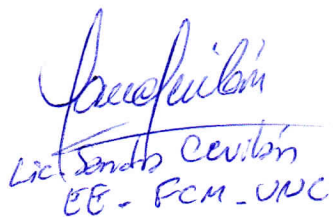 Lic. Sandra Cevilán
EE - FCM - UNC